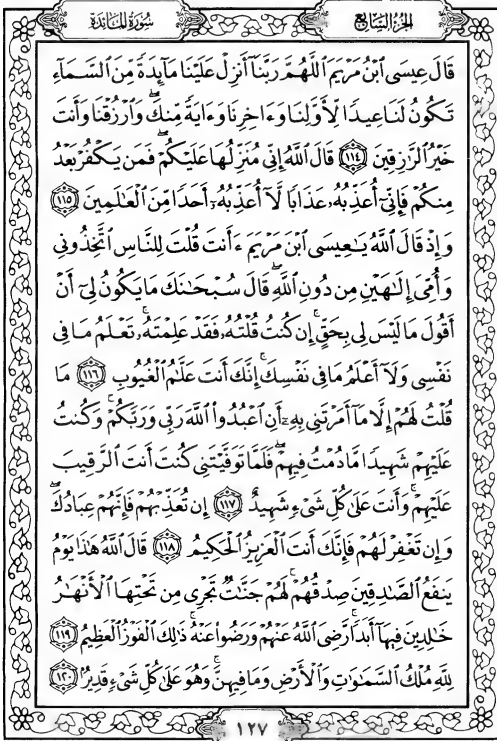 الجزء السابع
سُورَةُ المَائدة
قَالَ عِيسَى ٱبْنُ مَرْيَمَ ٱللَّهُمَّ رَبَّنَآ أَنزِلْ عَلَيْنَا مَآئِدَةً مِّنَ ٱلسَّمَآءِ
تَكُونُ لَنَا عِيدًا لِّأَوَّلِنَا وَءَاخِرِنَا وَءَايَةً مِّنكَۖ وَٱرْزُقْنَا وَأَنتَ
خَيْرُ ٱلرَّٰزِقِينَ ۝١١٤ قَالَ ٱللَّهُ إِنِّى مُنَزِّلُهَا عَلَيْكُمْۖ فَمَن يَكْفُرْ بَعْدُ
مِنكُمْ فَإِنِّىٓ أُعَذِّبُهُۥ عَذَابًا لَّآ أُعَذِّبُهُۥٓ أَحَدًا مِّنَ ٱلْعَٰلَمِينَ ۝١١٥
وَإِذْ قَالَ ٱللَّهُ يَٰعِيسَى ٱبْنَ مَرْيَمَ ءَأَنتَ قُلْتَ لِلنَّاسِ ٱتَّخِذُونِى
وَأُمِّىَ إِلَٰهَيْنِ مِن دُونِ ٱللَّهِۖ قَالَ سُبْحَٰنَكَ مَا يَكُونُ لِىٓ أَنْ
أَقُولَ مَا لَيْسَ لِى بِحَقٍّۚ إِن كُنتُ قُلْتُهُۥ فَقَدْ عَلِمْتَهُۥۚ تَعْلَمُ مَا فِى
نَفْسِى وَلَآ أَعْلَمُ مَا فِى نَفْسِكَۚ إِنَّكَ أَنتَ عَلَّٰمُ ٱلْغُيُوبِ ۝١١٦ مَا
قُلْتُ لَهُمْ إِلَّا مَآ أَمَرْتَنِى بِهِۦٓ أَنِ ٱعْبُدُوا۟ ٱللَّهَ رَبِّى وَرَبَّكُمْۚ وَكُنتُ
عَلَيْهِمْ شَهِيدًا مَّا دُمْتُ فِيهِمْۖ فَلَمَّا تَوَفَّيْتَنِى كُنتَ أَنتَ ٱلرَّقِيبَ
عَلَيْهِمْۚ وَأَنتَ عَلَىٰ كُلِّ شَىْءٍ شَهِيدٌ ۝١١٧ إِن تُعَذِّبْهُمْ فَإِنَّهُمْ عِبَادُكَۖ
وَإِن تَغْفِرْ لَهُمْ فَإِنَّكَ أَنتَ ٱلْعَزِيزُ ٱلْحَكِيمُ ۝١١٨ قَالَ ٱللَّهُ هَٰذَا يَوْمُ
يَنفَعُ ٱلصَّٰدِقِينَ صِدْقُهُمْۚ لَهُمْ جَنَّٰتٌ تَجْرِى مِن تَحْتِهَا ٱلْأَنْهَٰرُ
خَٰلِدِينَ فِيهَآ أَبَدًاۚ رَّضِىَ ٱللَّهُ عَنْهُمْ وَرَضُوا۟ عَنْهُۚ ذَٰلِكَ ٱلْفَوْزُ ٱلْعَظِيمُ ۝١١٩
لِلَّهِ مُلْكُ ٱلسَّمَٰوَٰتِ وَٱلْأَرْضِ وَمَا فِيهِنَّۚ وَهُوَ عَلَىٰ كُلِّ شَىْءٍ قَدِيرٌۢ ۝١٢٠
١٢٧